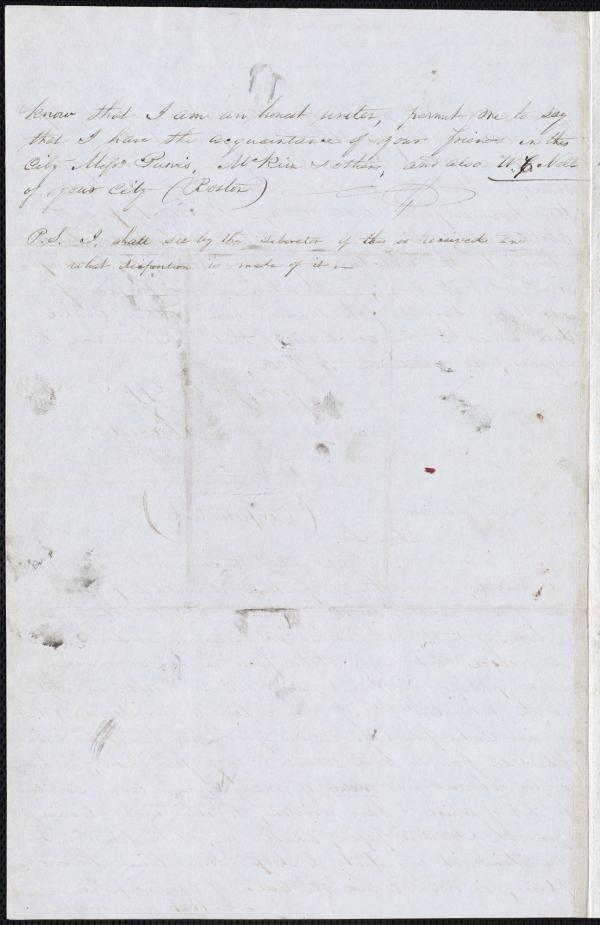 know that I am an honest writer, permit me to say
that I have the acquaintance of your friends in this
City Messrs Purvis, McKim & others, and also W. C. Nell
of your City (Boston)
P.S. I shall see by the Liberator if this is received and
what disposition is made of it —